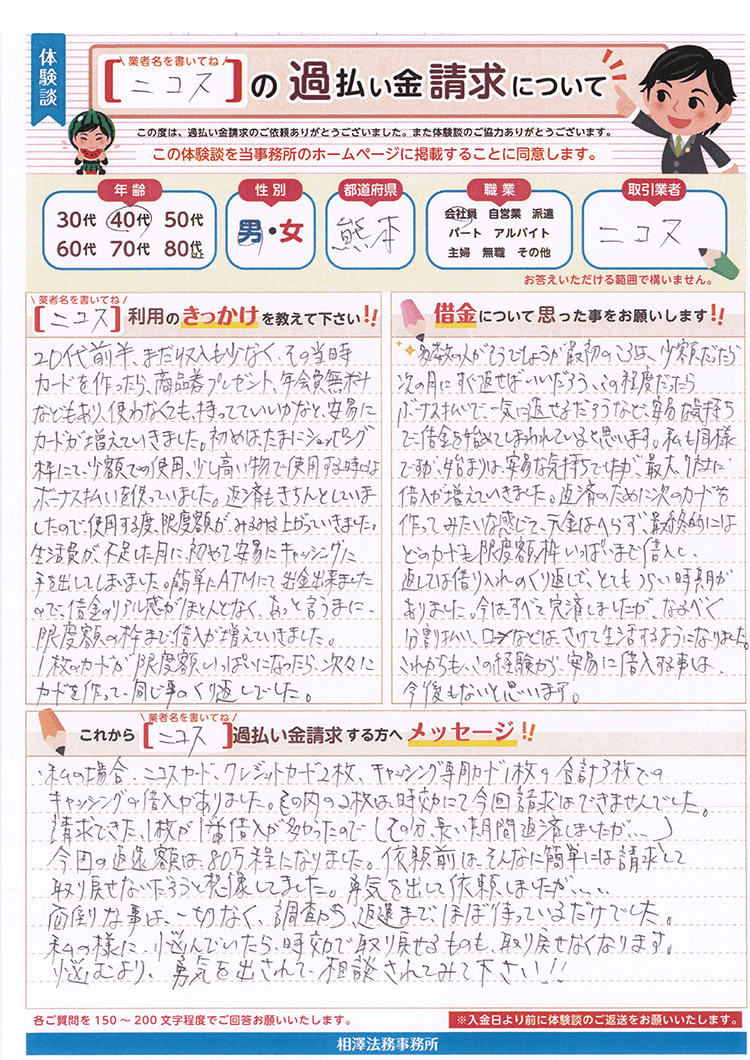 体験談
業者名を書いてね
[ニコス]の過払い金請求について
この度は、過払い金請求のご依頼ありがとうございました。また体験談のご協力ありがとうございます。
この体験談を当事務所のホームページに掲載することに同意します。
年齢
30代 40代 50代
60代 70代 80代以上
性別
男・女
都道府県
熊本
職業
会社員 自営業 派遣
パート アルバイト
主婦 無職 その他
取引業者
ニコス
お答えいただける範囲で構いません。
業者名を書いてね
[ニコス]利用のきっかけを教えて下さい!!
20代前半、まだ収入も少なく、その当時
カードを作ったら、商品券プレゼント、年会費無料
などもあり、使わなくても、持っていていいかなと、安易に
カードが増えていきました。初めは、たまにショッピング
枠にて、少額での使用、少し高い物で使用する時は
ボーナス払いを使っていました。返済もきちんとしていま
したので、使用する度、限度額が、みるみる上がっていきました。
生活費が不足した月に、初めて安易にキャッシングに
手を出してしまいました。簡単にATMにて出金出来ました
ので、借金のリアル感がほとんどなく、あっと言うまに、
限度額の枠まで借入が増えていきました。
1枚のカードが限度額いっぱいになったら、次々に
カードを作って、同じ事のくり返しでした。
借金について思った事をお願いします!!
多数の人がそうでしょうが最初のころは、少額だったら
次の月にすぐ返せばいいだろう、この程度だったら
ボーナス払いで、一気に返せるだろうなど、安易な気持ち
で借金を始めてしまわれていると思います。私も同様
ですが、始まりは、安易な気持ちでしたが、最大、7社に
借入が増えていきました。返済のために次のカードを
作ってみたいな感じで、元金はへらず、最終的には
どのカードも限度額枠いっぱいまで借入し、
返しては借り入れのくり返しで、とてもつらい時期が
ありました。今はすべて完済しましたが、なるべく
分割払い、ローンなどは、さけて生活するようになりました。
これからも、この経験から、安易に借入する事は、
今後もないと思います。
業者名を書いてね
これから[ニコス]過払い金請求する方へメッセージ!!
私の場合、ニコスカード、クレジットカード2枚、キャッシング専用カード1枚の合計3枚での
キャッシングの借入がありました。その内の2枚は、時効にて今回請求はできませんでした。
請求できた、1枚が1番借入が多かったので(その分、長い期間返済しましたが...)
今回の返還額は、80万程になりました。依頼前は、そんなに簡単には請求して
取り戻せないだろうと想像してました。勇気を出して依頼しましたが、....
面倒な事は、一切なく、調査から、返還まで、ほぼ待っているだけでした。
私の様に、悩んでいたら、時効で取り戻せるものも、取り戻せなくなります。
悩むより、勇気を出されて、相談されてみて下さい!!
各ご質問を150～200文字程度でご回答お願いいたします。
※入金日より前に体験談のご返送をお願いいたします。
相澤法務事務所